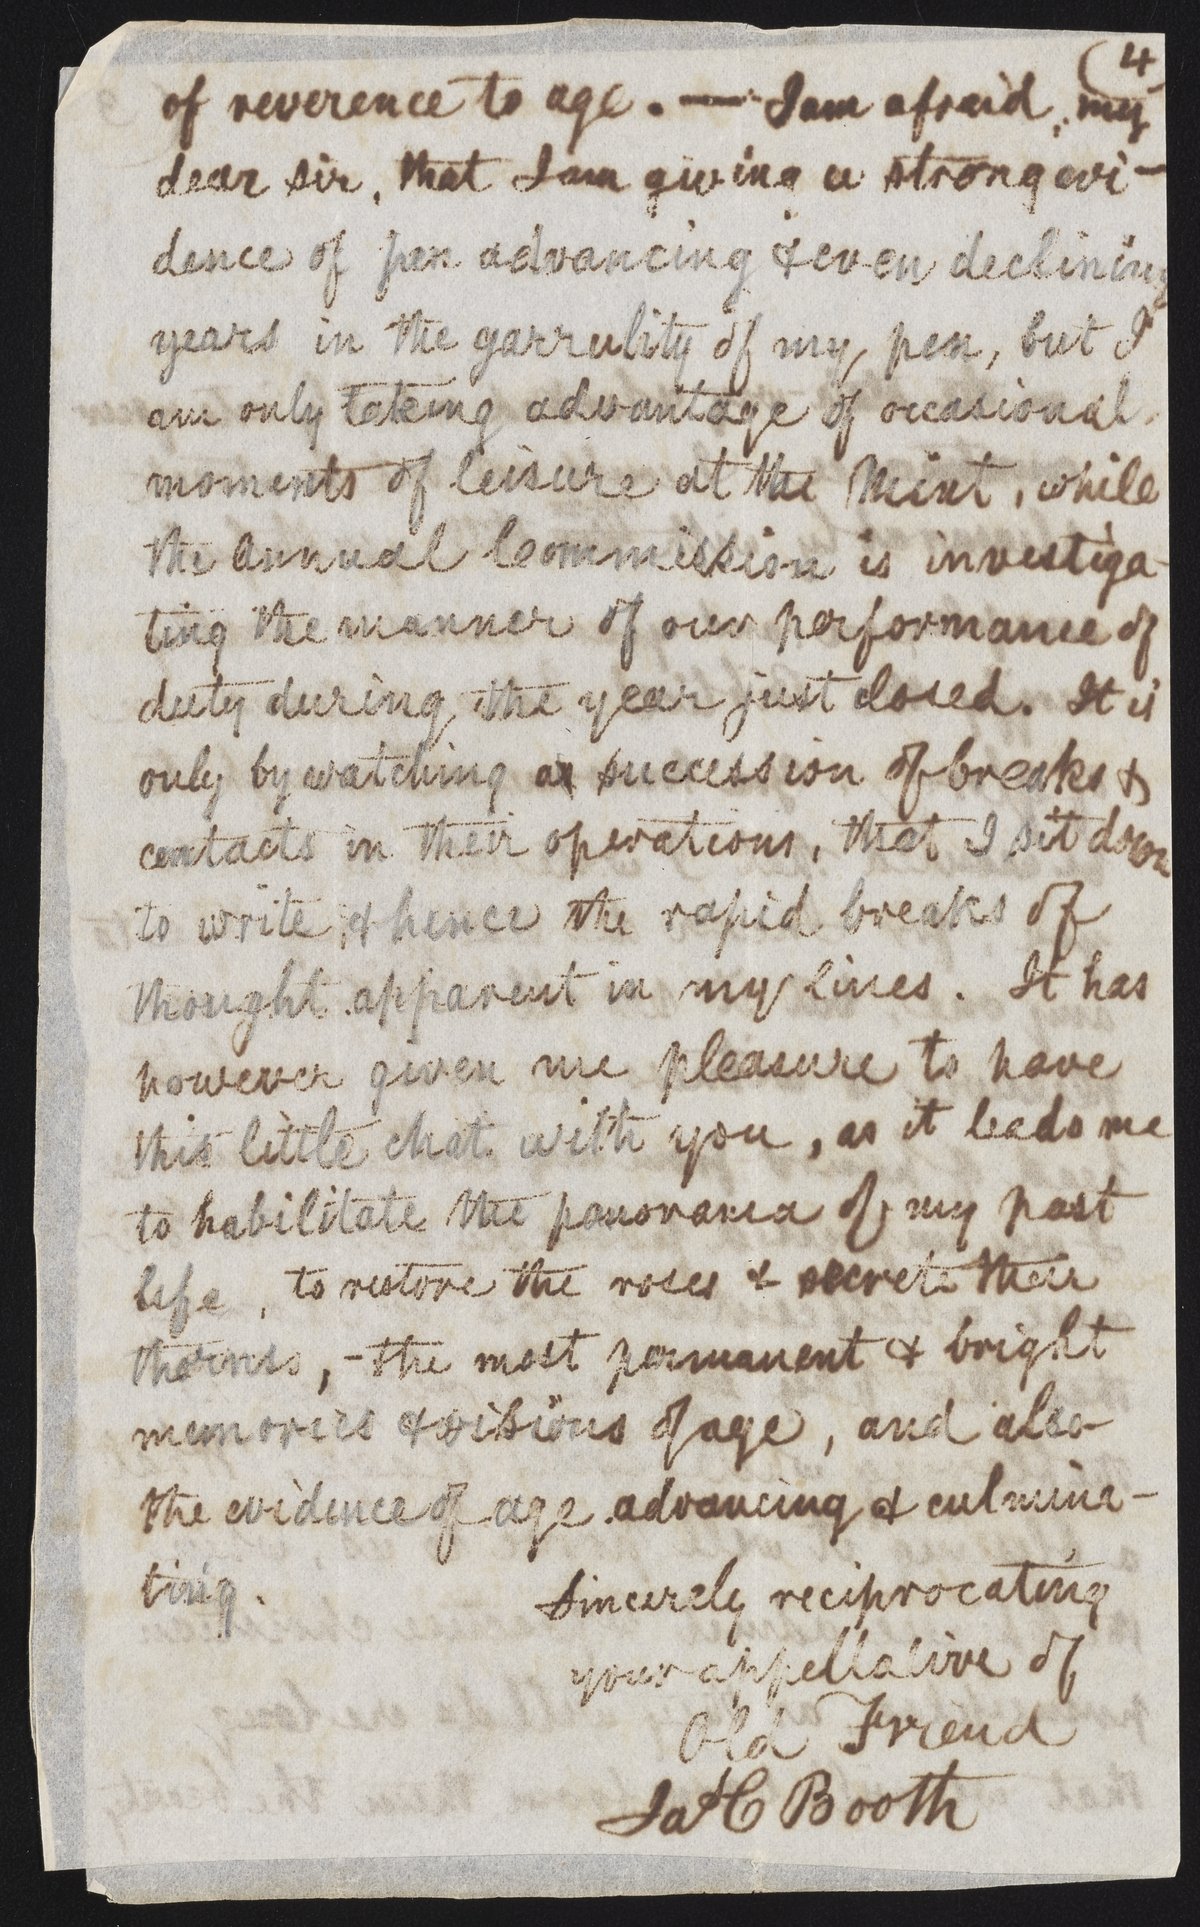 (4
of reverence to age. — I am afraid, my
dear sir, that I am giving a strong evi-
dence of pen advancing & even declining
years in the garrulity of my pen, but I
am only taking advantage of occasional
moments of leisure at the Mint, while
the Annual Commission is investiga-
ting the manner of our performance of
duty during the year just closed. It is
only by watching a succession of breaks &
contacts in their operations, that I sit down
to write, & hence the rapid breaks of
thought apparent in my lines. It has
however given me pleasure to have
this little chat with you, as it leads me
to habilitate the panorama of my past
life, to restore the roses & secrete their
thorns, - the most permanent & bright
memories & visions of age, and also
the evidence of age advancing & culmina-
ting.
Sincerely reciprocating
your appellative of
Old Friend
Jas C Booth